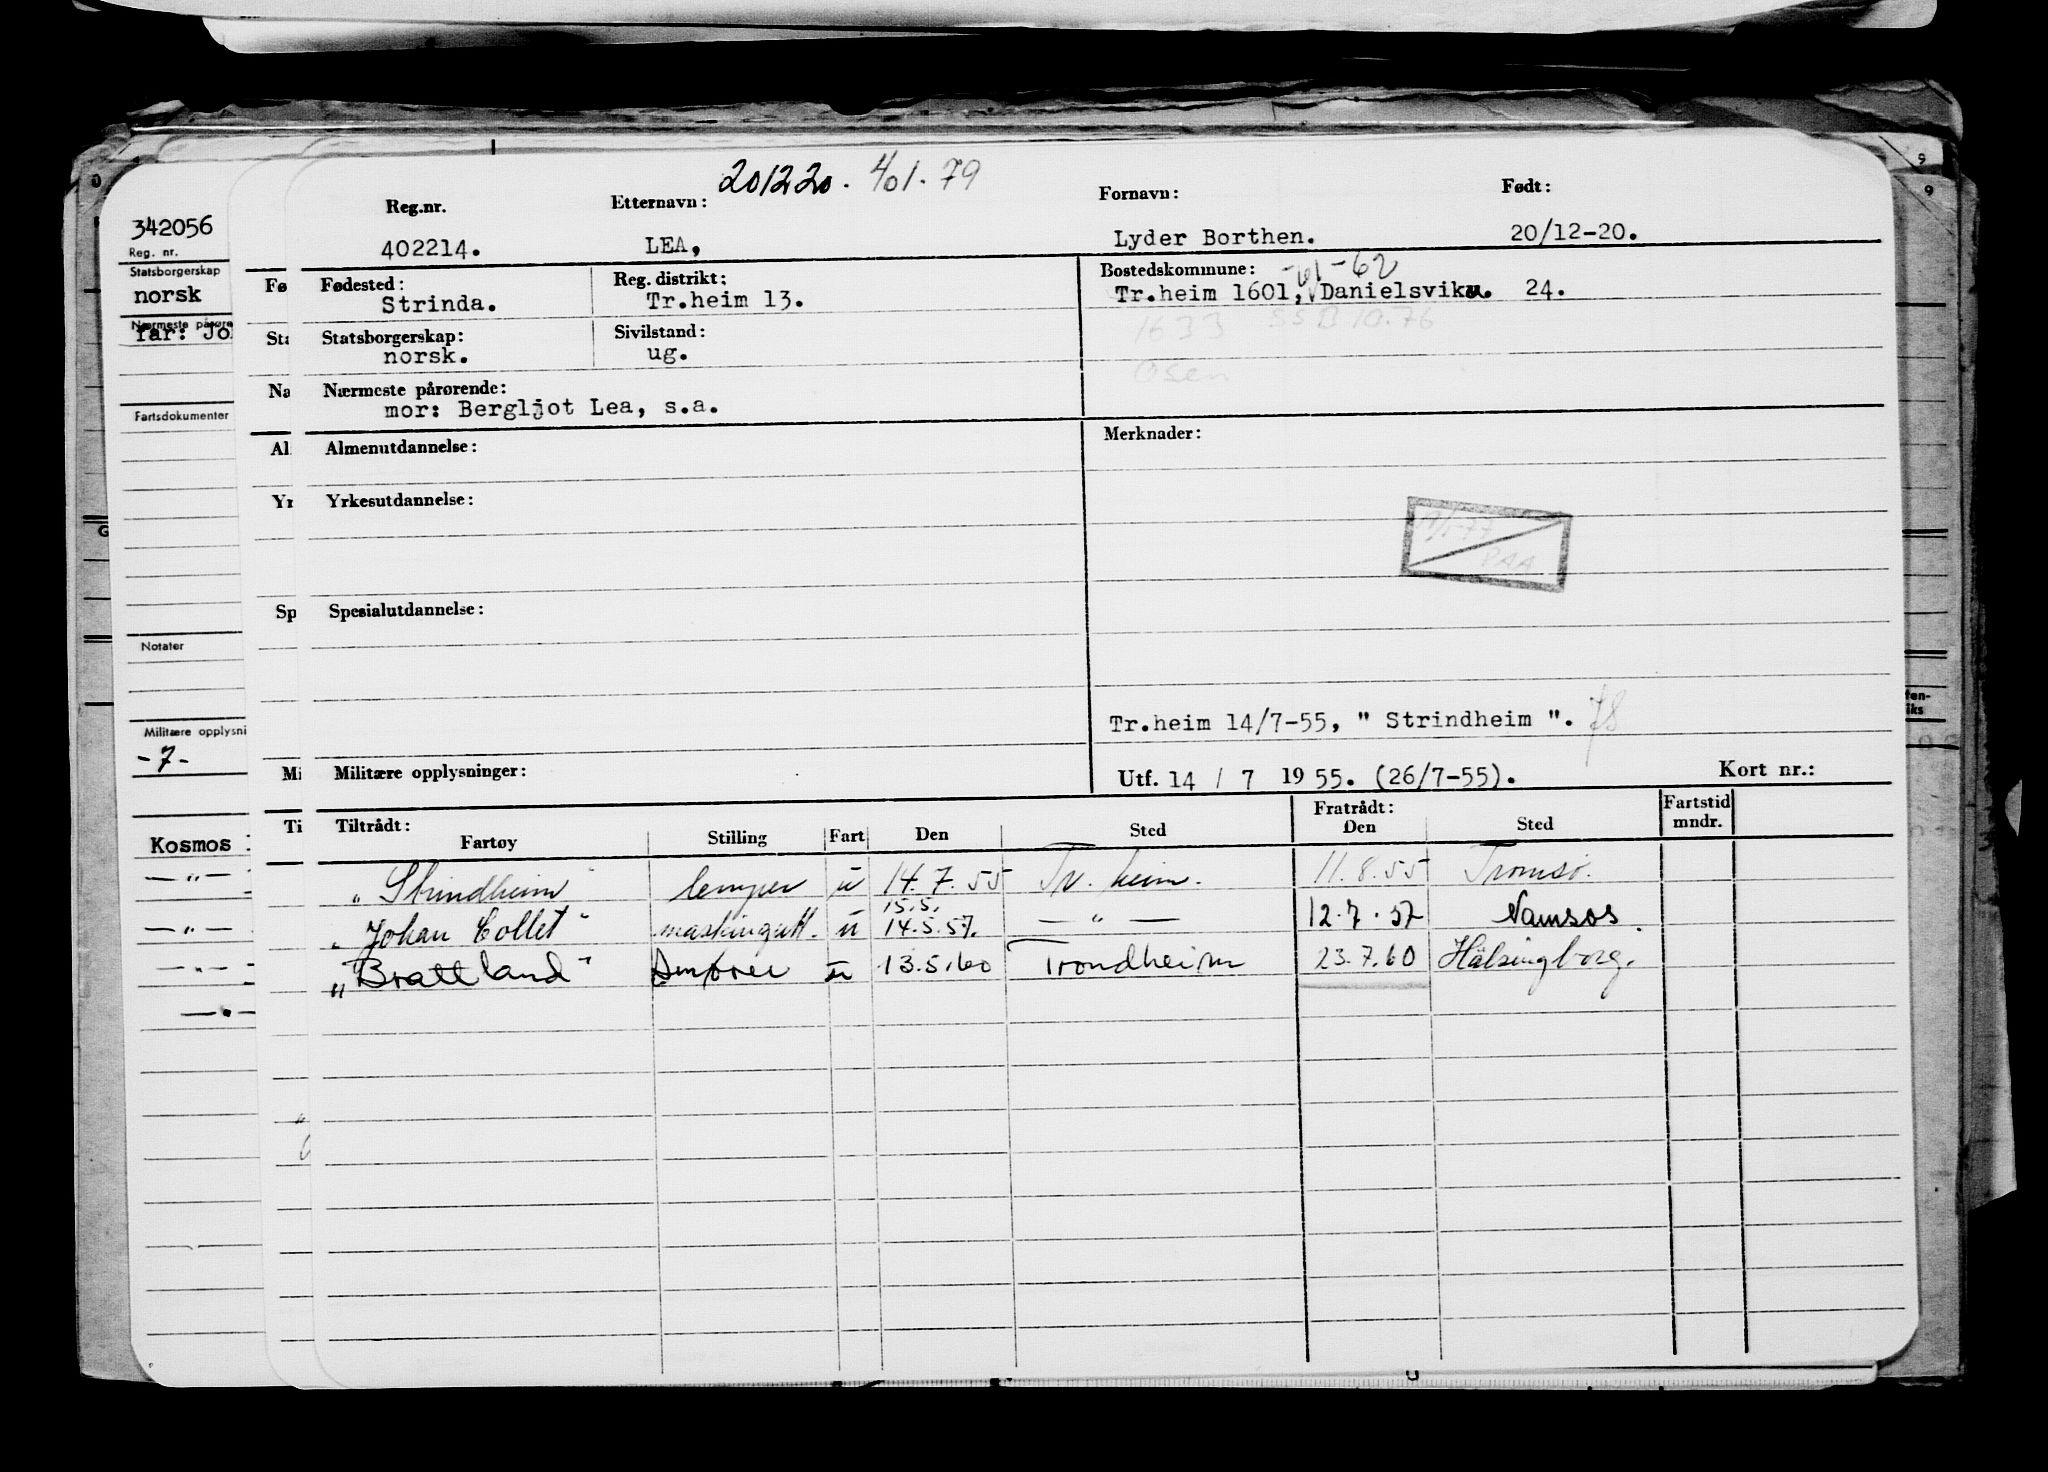 201220. 401.79
Reg.nr. Etternavn: Fornavn: Født:
402214. LEA, Lyder Borthen. 20/12-20.
Fødested: Reg. distrikt: Bostedskommune: -61-62
Strinda. Tr.heim 13. Tr.heim 1601, Danielsviku. 24.
1633 SSB 10.76
Statsborgerskap: Sivilstand:
norsk. ug.
Osen
Nærmeste pårørende:
mor: Bergljot Lea, s.a.
Almenutdannelse: Merknader:
Yrkesutdannelse:
Spesialutdannelse:
Tr.heim 14/7-55, " Strindheim ". 78
Militære opplysninger: Utf. 14 / 7 1955. (26/7-55). Kort nr.:
Tiltrådt: Fratrådt: Fartstid
Fartøy Stilling Fart Den Sted Den Sted mndr.
"Strindheim" lemper u 14.7.55 Tr.heim. 11.8.55 Tromsø.
15.5.
"Johan Collet" maskingutt. u 14.5.57. — " — 12.7.57 Namsos.
"Brattland" Smører u 13.5.60 Trondheim 23.7.60 Hälsingborg.
342056
Reg. nr.
Statsborgerskap
norsk
Nærmeste pårøre
far: Jo
Fartsdokumenter
Notater
Militære opplysni
-7-
Kosmos
— " —
— " —
— " —
— " —
Fø
Sta
Na
Al
Yr
Sp
Mi
Ti